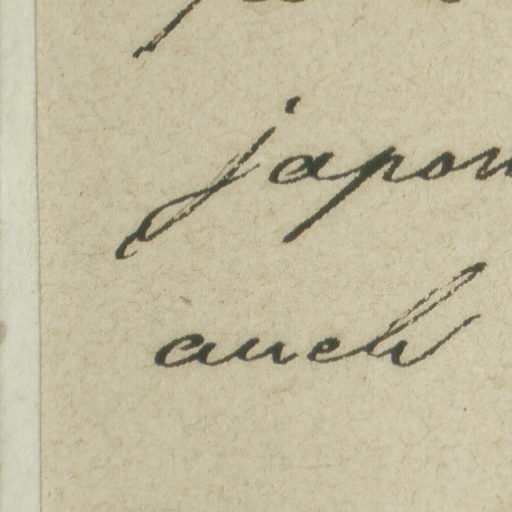 japon
auch